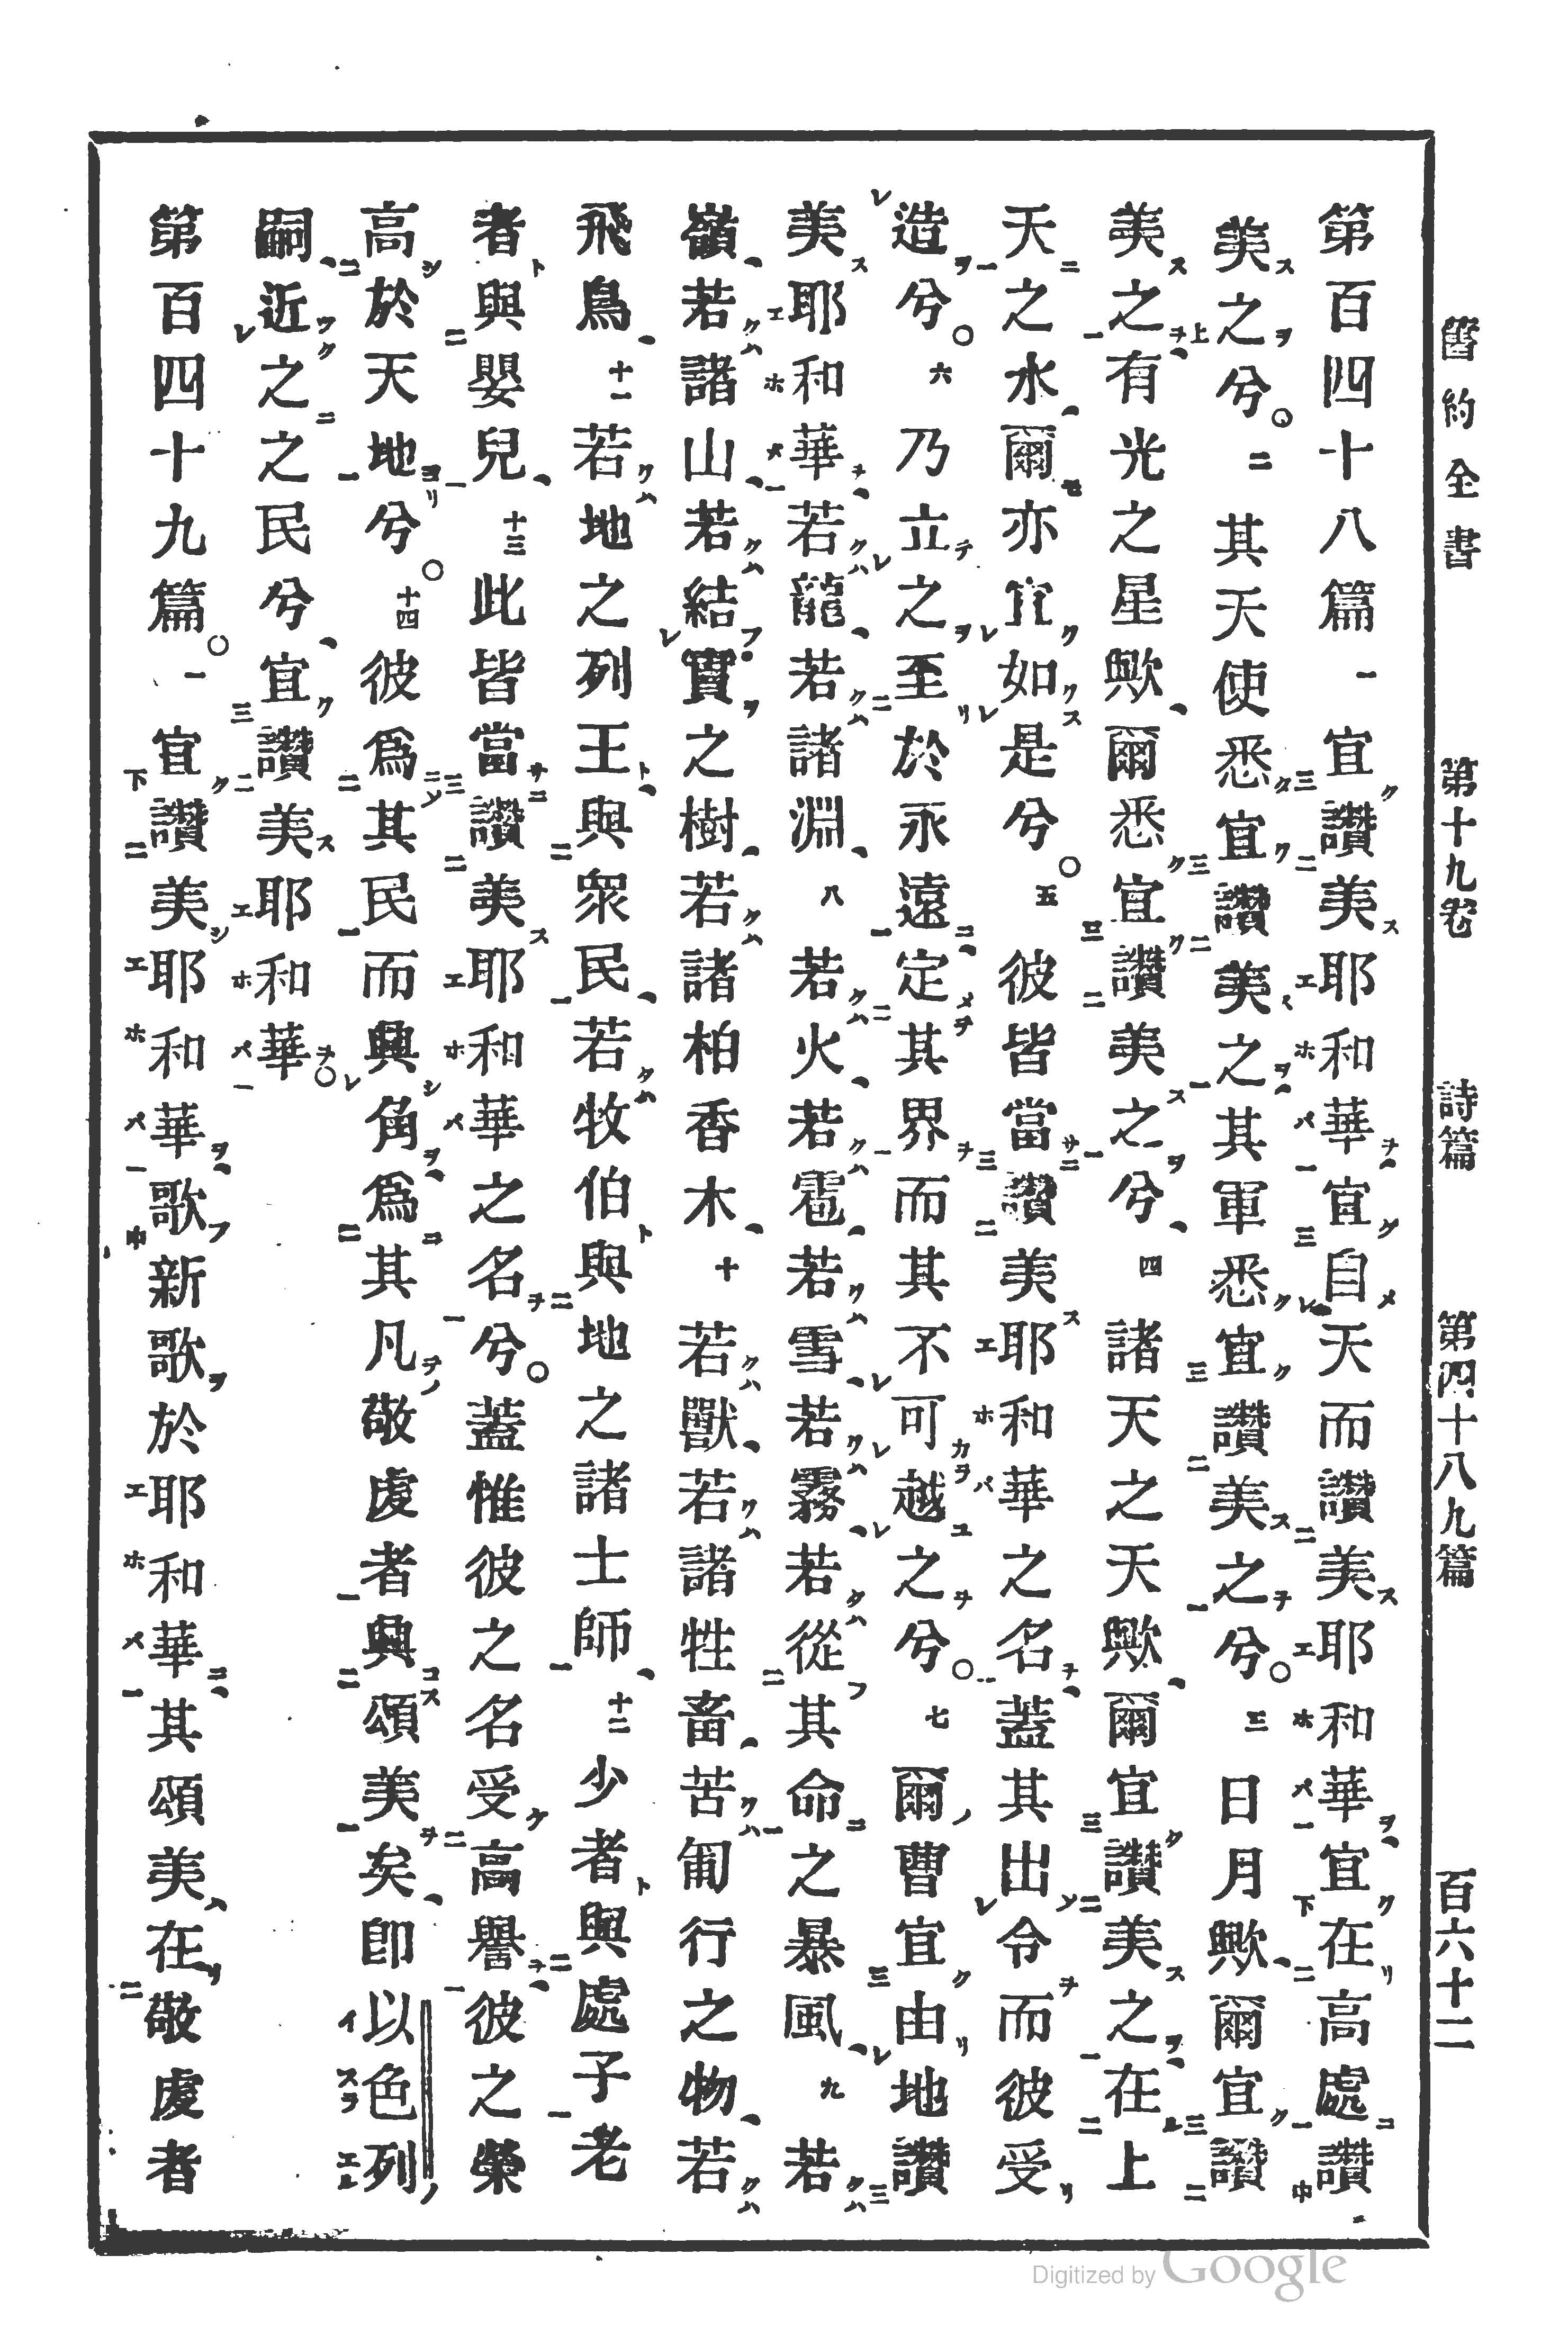 舊約全書 第十九卷 詩篇 第四十八九篇 百六十二
第百四十八篇 一 宜讚美耶和華宜自天而讚美耶和華宜在高處讚
美之兮。二 其天使悉宜讚美之其軍悉宜讚美之兮。三 日月歟爾宜讚
美之有光之星歟爾悉宜讚美之兮、四 諸天之天歟爾宜讚美之在上
天之水爾亦宜如是兮。五 彼皆當讚美耶和華之名蓋其出令而彼受
造兮。六 乃立之至於永遠定其界而其不可越之兮。七 爾曹宜由地讚
美耶和華若龍、若諸淵、八 若火、若雹、若雪、若霧、若從其命之暴風、九 若
嶺、若諸山、若結實之樹、若諸柏香木、十 若獸、若諸牲畜、若匍行之物、若
飛鳥、十一 若地之列王與衆民、若牧伯與地之諸士師、十二 少者與處子老
者與嬰兒、十三 此皆當讚美耶和華之名兮。蓋惟彼之名受高譽彼之榮
高於天地兮。十四 彼爲其民而興角爲其凡敬虔者興頌美矣、即以色列
嗣、近之之民兮、宜讚美耶和華。
第百四十九篇。一 宜讚美耶和華歌新歌於耶和華其頌美、在敬虔者
Digitized by Google